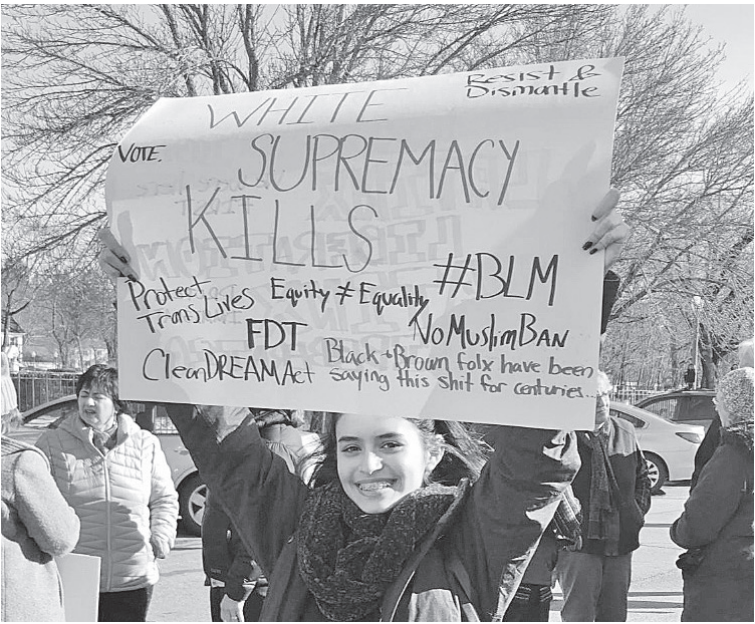 Resist &
Dismantle
WHITE
VOTE.
SUPREMACY
KILLS
#BLM
Protect
Trans Lives
Equity ≠ Equality
FDT
No Muslim BAN
Clean DREAM Act
Black + Brown folx have been
saying this shit for centuries...